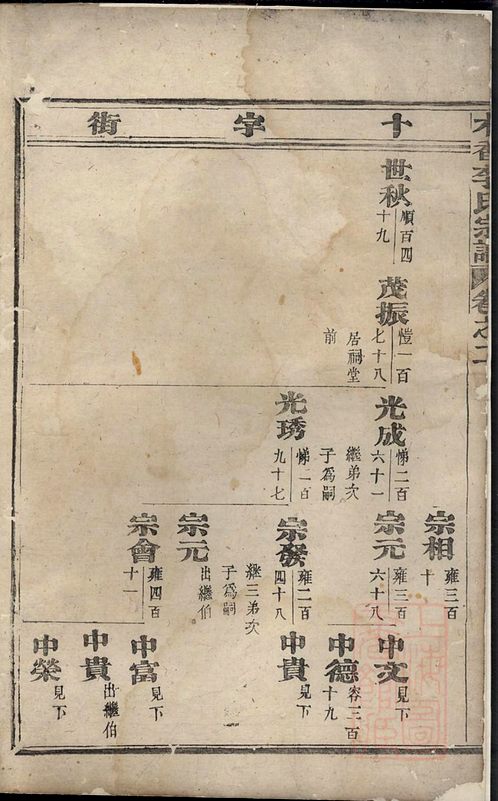 十字街
李氏宗譜 卷之二
世秋
順百四十九
茂振
愷一百七十八
居祠堂前
光成
悌二百六十一
繼弟次子為嗣
光琇
悌二百九十七
宗相
雍三百十
宗元
雍三百六十八
宗發
雍二百四十八
继三弟次子為嗣
宗元
出繼伯
宗會
雍四百十一
中文
見下
中德
容三百十九
中貴
見下
中富
見下
中貴
出繼伯
中榮
見下